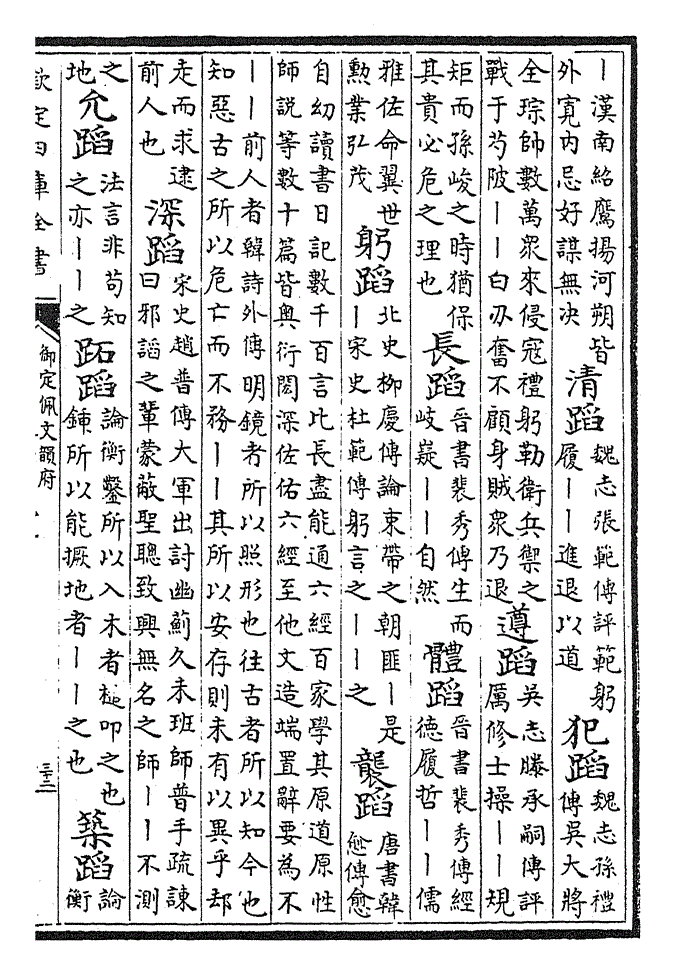 ｜漢南紹鷹揚河朔皆
外寬內忌好謀無決
清蹈
魏志張範傳評範躬
履｜｜進退以道
犯蹈
魏志孫禮
傳吳大將
全琮帥數萬衆來侵寇禮躬勒衛兵禦之
戰于芍陂｜｜白刃奮不顧身賊衆乃退
遵蹈
吳志滕承嗣傳評
厲修士操｜｜規
矩而孫峻之時猶保
其貴必危之理也
長蹈
晉書裴秀傳生而
岐嶷｜｜自然
體蹈
晉書裴秀傳經
德履哲｜｜儒
雅佐命翼世
勲業弘茂
躬蹈
北史柳慶傳論束帶之朝匪｜是
｜宋史杜範傳躬言之｜｜之
襲蹈
唐書韓
愈傳愈
自幼讀書日記數千百言比長盡能通六經百家學其原道原性
師説等數十篇皆奥衍閎深佐佑六經至他文造端置辭要為不
｜｜前人者韓詩外傳明鏡者所以照形也往古者所以知今也
知惡古之所以危亡而不務｜｜其所以安存則未有以異乎却
走而求逮
前人也
深蹈
宋史趙普傳大軍出討幽薊久未班師普手疏諫
曰邪謟之輩蒙蔽聖聰致興無名之師｜｜不測
之
地
允蹈
法言非苟知
之亦｜｜之
跖蹈
論衡鑿所以入木者槌叩之也
鍤所以能撅地者｜｜之也
築蹈
論
衡
欽定四庫全書
御定佩文韻府
三十二